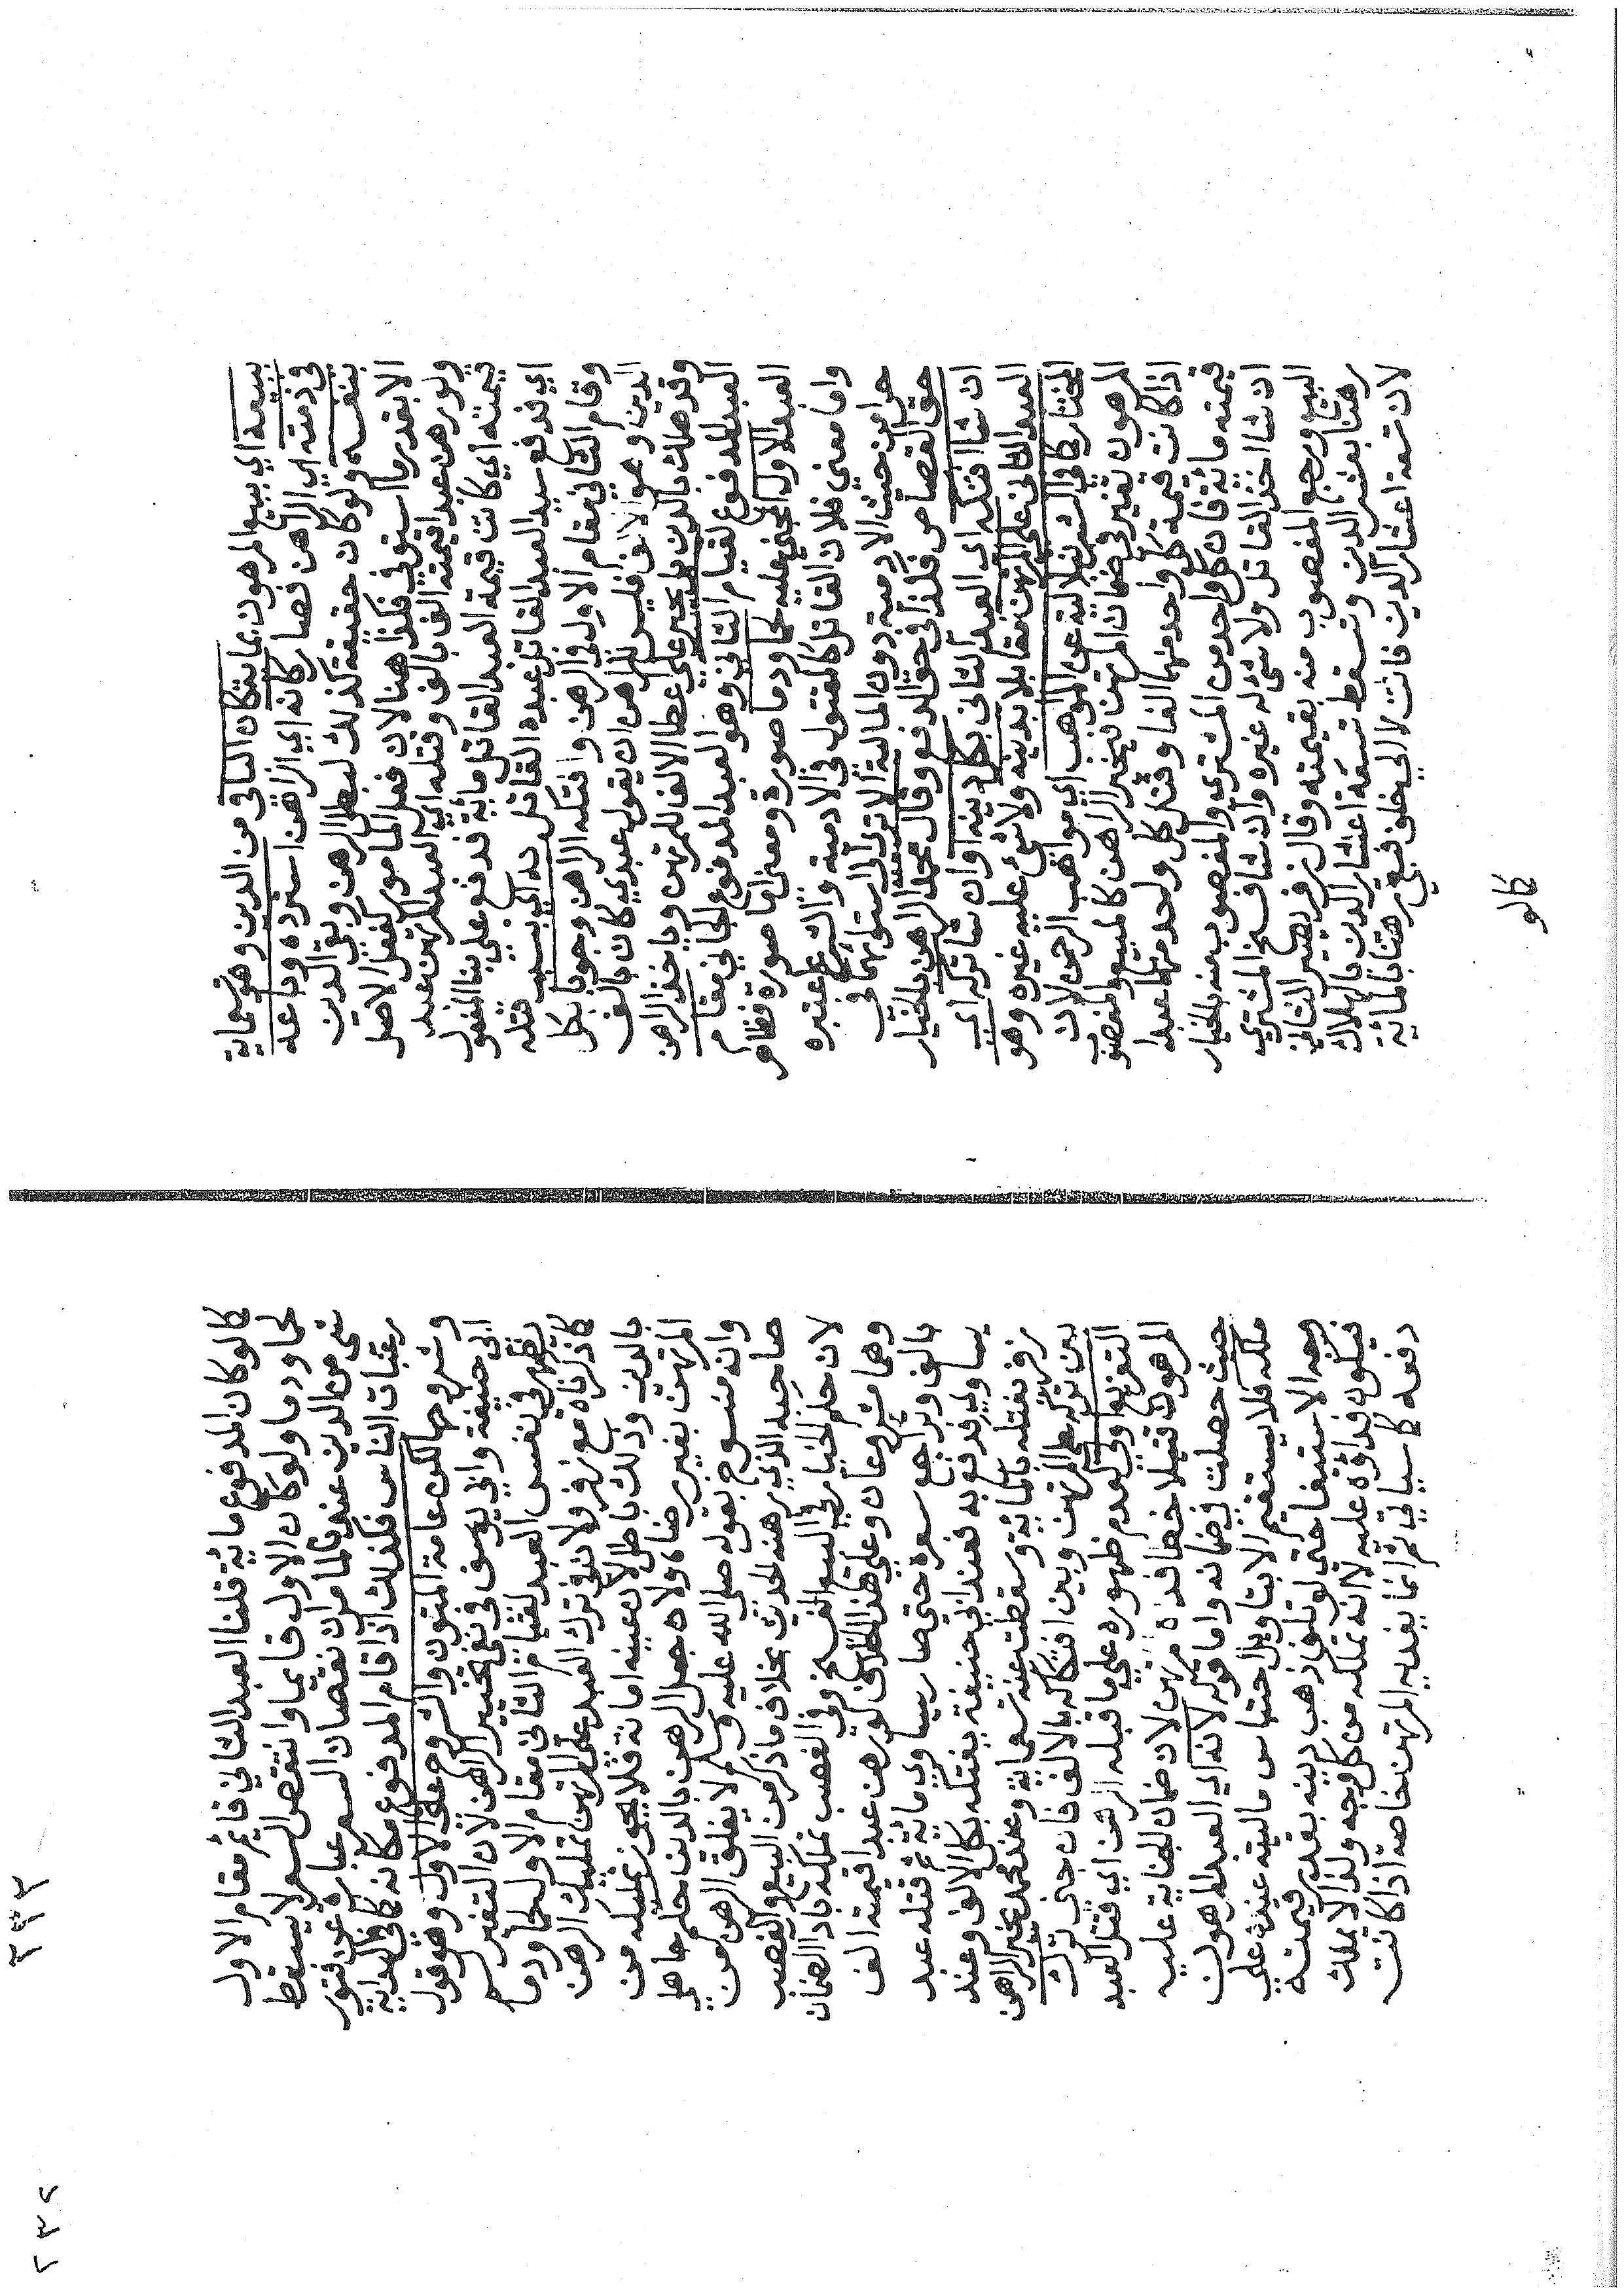 ببيعه اي ببيع المرهون بما يتكان الباقي من الدين وهو تسعماية
في ذمته اي الراهن فصار كانه اي الراهن استرده وباعه
بنفسه ولو كان حقيقة كذلك لبطل الرهن وبقي الدين
الا بقدر ما استوفي فكذا هنا لان فعل المامور كفعل الاصل
ولو رهن عبدا قيمته الف بالف وقتله اي العبد المرتهن عبد
قيمته اي كانت قيمة العبد القاتل مائة فدفع علي بنا المفعول
اي فدفع سيد العبد القاتل عبده القاتل به اي بسبب قتله
وقام الثاني مقام الاول في الرهن وافتكه الراهن وجوبا بكل
الدين وهو الالف فليس للراهن ان يقول عبدي كان بالف
وقد هلك بالدين بل يجبر علي اعطا الالف للمرتهن وياخذ الرهن
العبد المدفوع لقيام الثاني وهو العبد المدفوع الجاني مقام
العبد الاول المجني عليه لحما ودما صورة ومعني اما صورة فظاهر
واما معني فلان القاتل كالمقتول في الادمية والشرع اعتبره
جزا من حيث الادمية دون المالية الا تري الي استوائهما في
حق القصاص فكذا في حق الدفع وقال محمد الراهن بالخيار
ان شا افتكه اي العبد الثاني بكل دينه او ان شا تركه اي
العبد الجاني علي المرتهن مقابلا بدينه ولا شئ عليه غيره وهو
المختار كما في الشرنبلالية عن المواهب اي مواهب الرحمن لان
المرهون تغير في ضمان المرتهن فيخير الراهن كالمبيع والمغصوب
اذا كانت قيمة كل واحد منهما الفا وقتل كل واحد منهما عبدا
قيمته مائة فان كل واحد من المشتري والمغصوب منه بالخيار
ان شا اخذ القاتل ولا شئ له غيره وان شا فسخ المشتري
البيع ورجع المغصوب منه بقيمته وقال زفر يصير الثاني
رهنا بعشر الدين وتسقط تسعة اعشار الدين بالهلاك
لان تسعة اعشار الدين فاتت لا الي خلف فبقي رهنا بالمائة
كالو
كالو كان المدفوع مائة قلنا العبد الثاني قائم مقام الاول
لحما ودما ولو كان الاول قايما وانتقص السعر لا يسقط
شئ من الدين عندنا لما مر ان نقصان السعر عبارة عن فتور
رغبات الناس فكذلك اذا قام المدفوع مكانه كما في الهداية
وشروحها لكن عامة المتون والشروح علي الاول وهو قول
ابي حنيفة وابي يوسف في نفي تخيير الراهن لان التغير لم
يظهر في نفس العبد لقيام الثاني مقام الاول لحما ودما
كما ذكرناه مع زفر ولان في ترك العبد علي المرتهن تمليك الرهن
بالدين وذلك باطل لان عينه امانة فلا يجوز تمليكه من
المرتهن بغير رضاه ولانه جعل الرهن بالدين حكم جاهلي
وانه منسوخ بقوله صلي الله عليه وسلم لا يغلق الرهن من
صاحبه الذي رهنه الحديث بخلاف ما ذكر من البيع والغصب
لان حكم الخيار في البيع الفسخ وفي الغصب تملكه بادا الضمان
وهما مشروعان وعلي هذا الخلاف لو رهن عبدا قيمته الف
بالف وتراجع سعره حتي صار يساوي مائة ثم قتله عبد
يساويها فدفع به فعند ابي حنيفة يفتكه بكل الالف وعند
زفر يفتكه بالمائة وسقطت عنه تسعماية وعند محمد يخير الراهن
بين تركه علي المرتهن وبين افتكاكه بالالف فان جني ترك
التفريع اولي لعدم ظهوره علي ما قبله الرهن اي قتل العبد
المرهون قتيلا خطا فداه مرتهن لان ضمان الجناية عليه
حيث حصلت في ضمانه واما قوله لانه اي العبد المرهون
ملكه فلا يستقيم الا بتاويل احتباس ماليته عنده علي
وجه الاستيفا حتي لو تلف ذهب دينه بقدر قيمته
فيكون فداؤه عليه لا انه تملكه من كل وجه ولذا لا يملك
دفعه كما سياتي ثم انما يفديه المرتهن خاصة اذا كانت